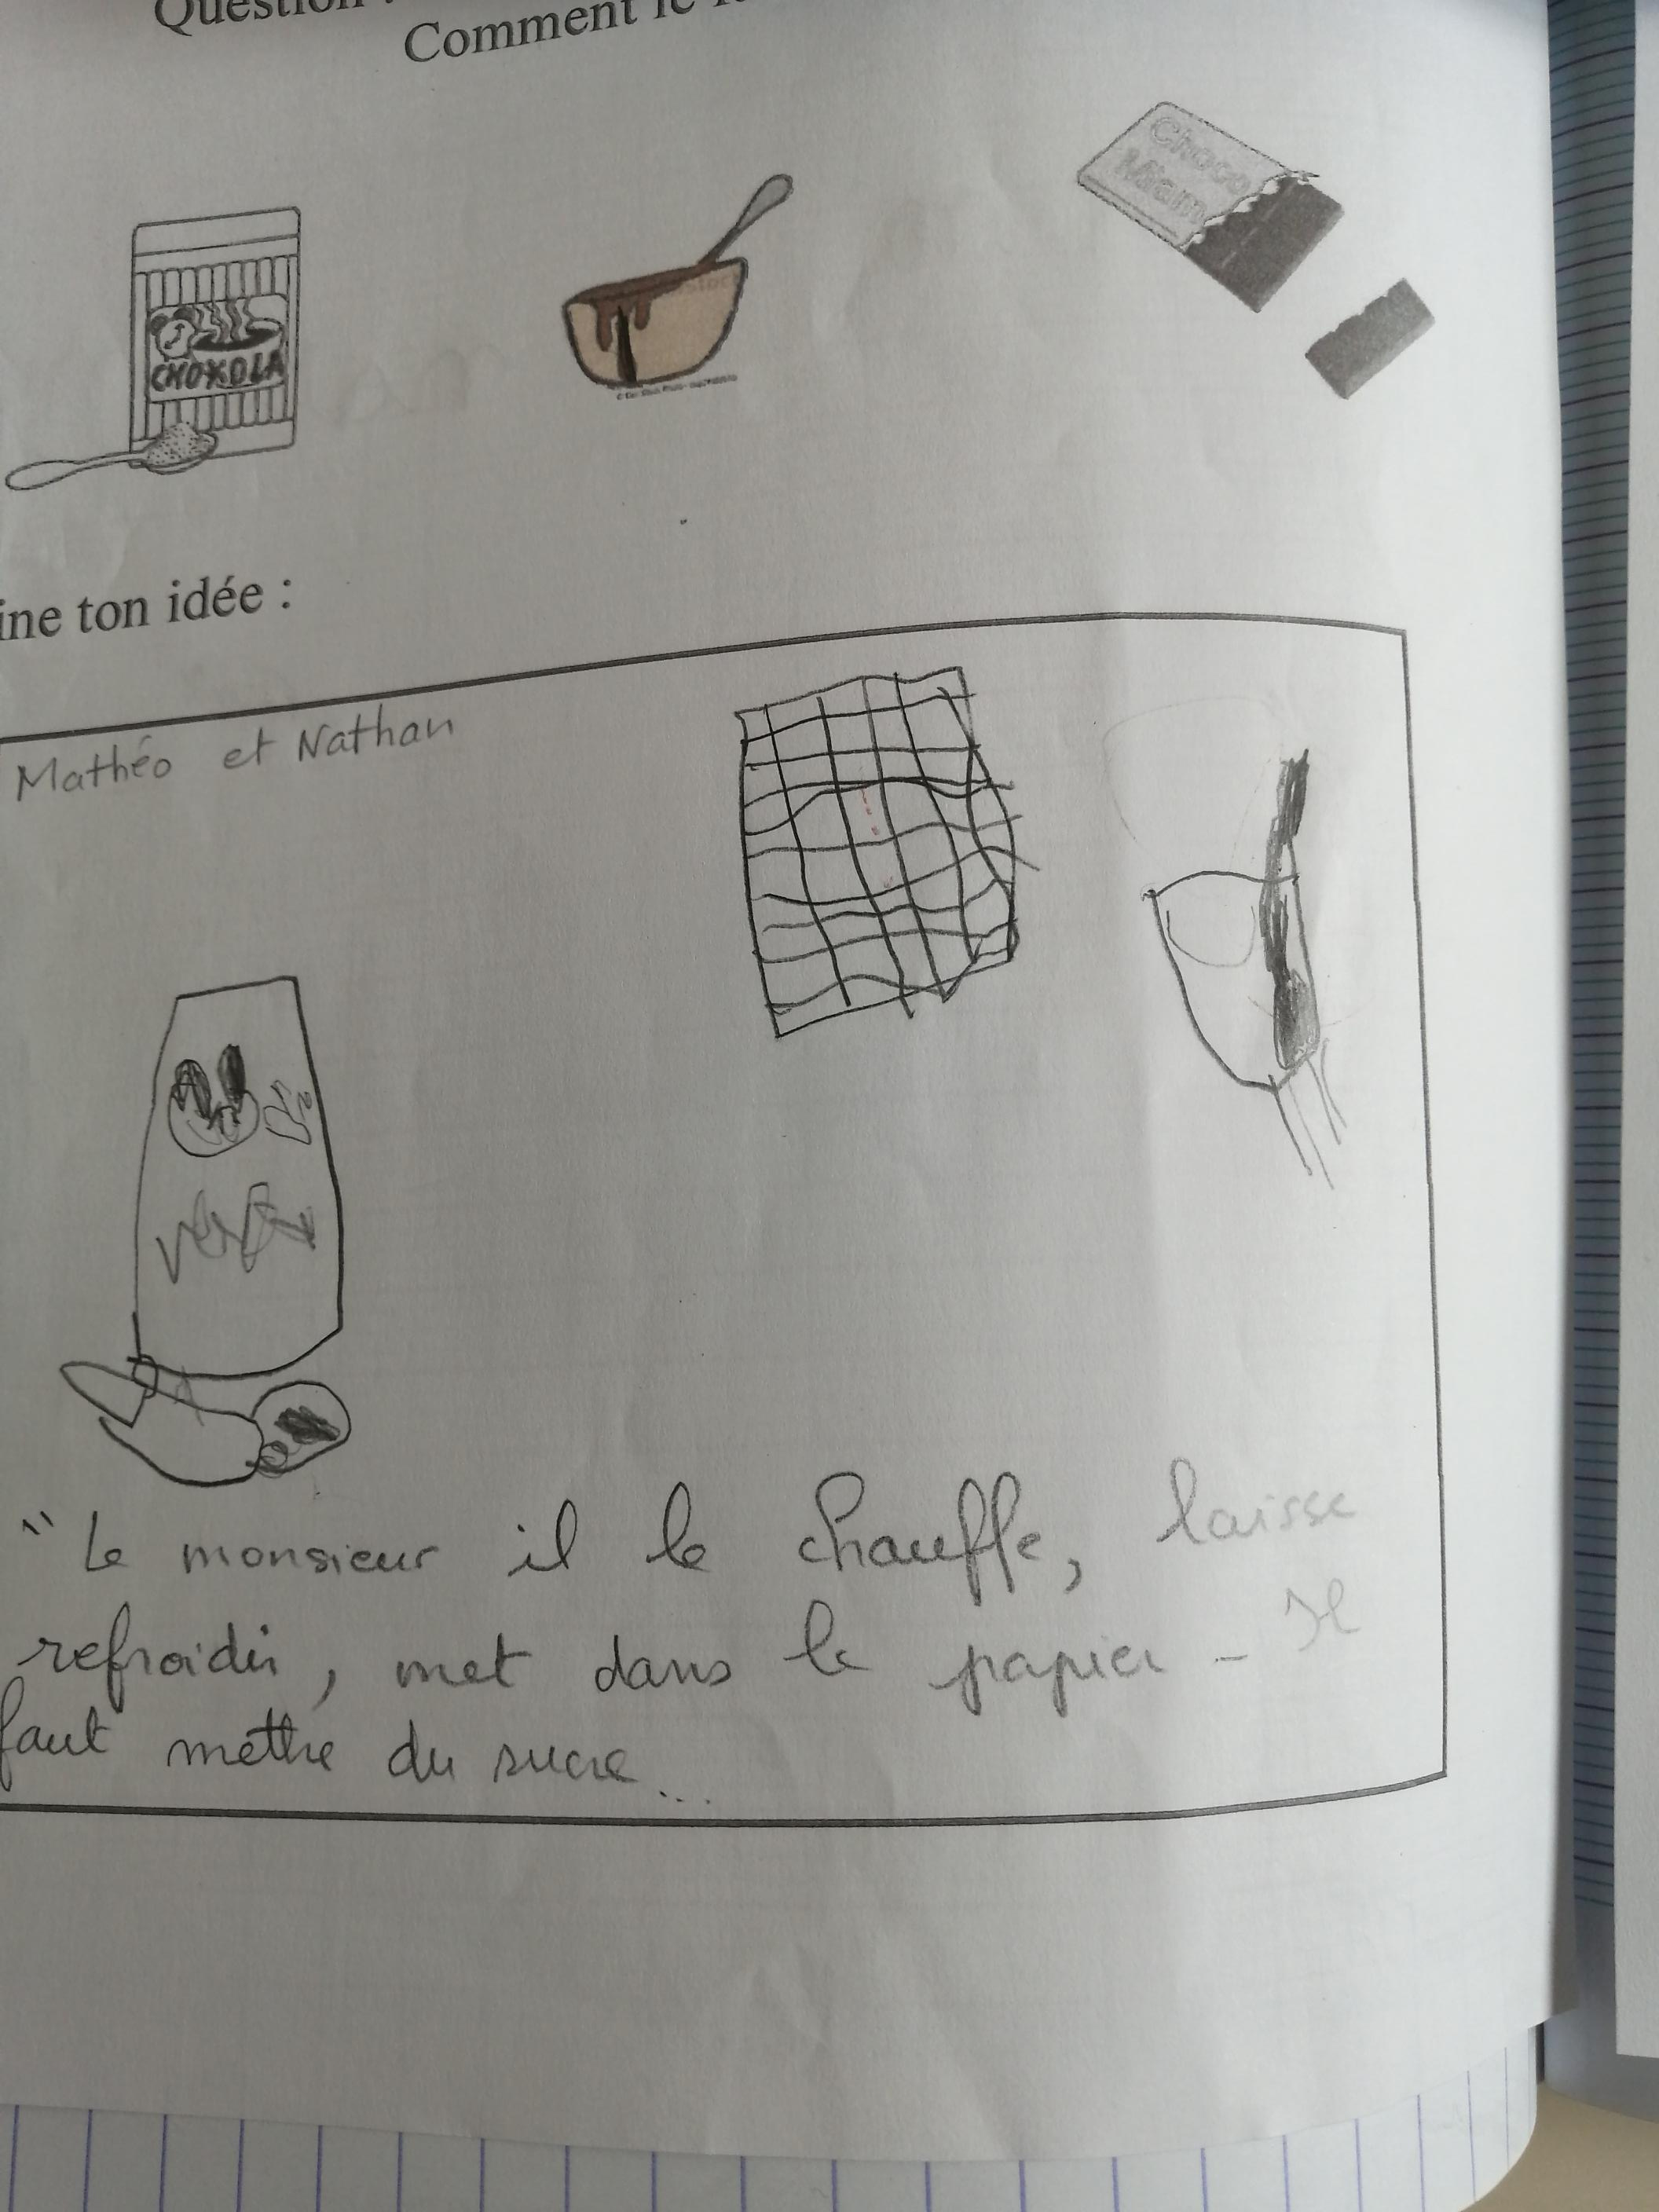 Question :
Comment le
Choco
Miam
CHOKOLA
ine ton idée :
Mathéo et Nathan
"Le monsieur il le chauffe, laisse
refroidir, met dans le papier - Il
faut mettre du sucre...